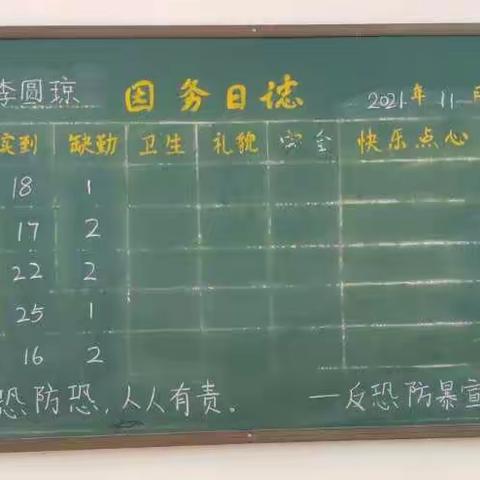 李圆琼 园务日誌 2021年11月
实到 缺勤 卫生 礼貌 安全 快乐点心
18 1
17 2
22 2
25 1
16 2
恐防恐,人人有责。 —反恐防暴宣